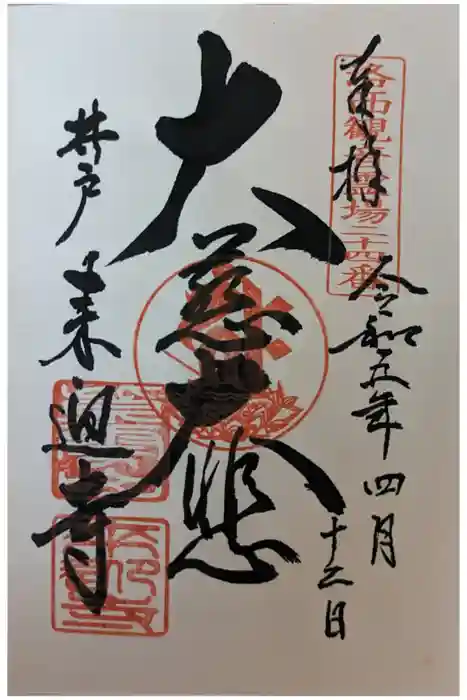 奉拝
洛西観音霊場二十四番
令和五年四月十二日
大慈大悲
井戸
来迎寺